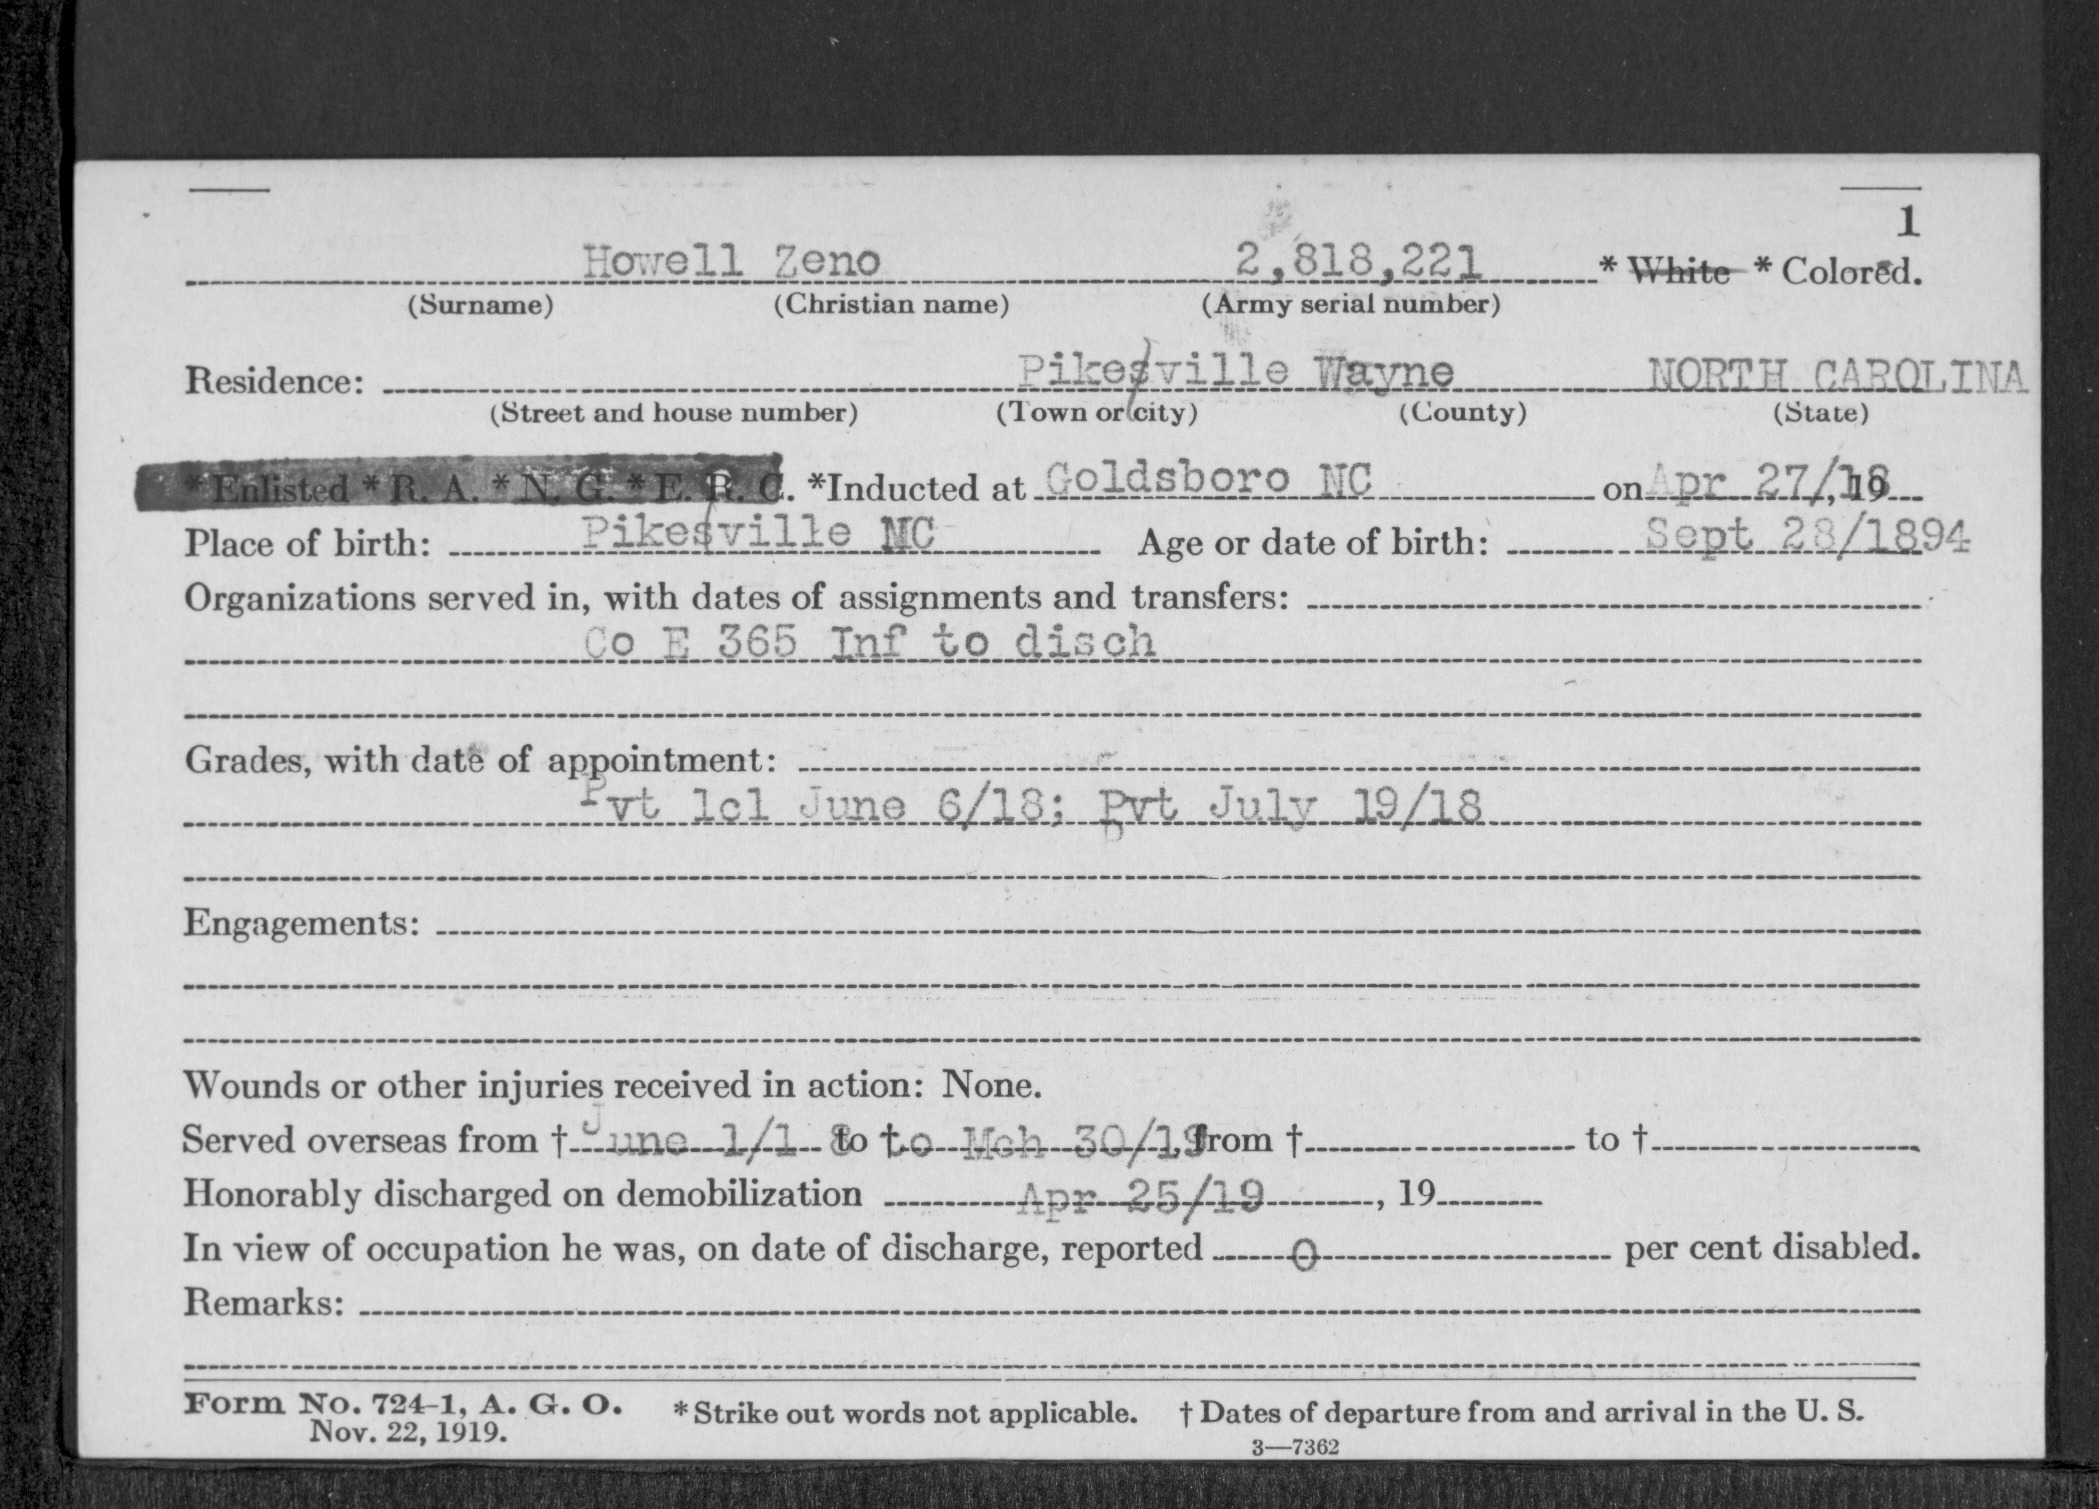 1
Howell Zeno 2,818,221 * White * Colored.
(Surname) (Christian name) (Army serial number)
Residence: Pikesville Wayne NORTH CAROLINA
(Street and house number) (Town or city) (County) (State)
* Enlisted * R. A. * N. G. * E. R. C. *Inducted at Goldsboro NC on Apr 27/18, 19
Place of birth: Pikesville NC Age or date of birth: Sept 28/1894
Organizations served in, with dates of assignments and transfers:
Co E 365 Inf to disch
Grades, with date of appointment:
Pvt 1cl June 6/18; Pvt July 19/18
Engagements:
Wounds or other injuries received in action: None.
Served overseas from † June 1/1 8 to † to Mch 30/19, from † to †
Honorably discharged on demobilization Apr 25/19, 19
In view of occupation he was, on date of discharge, reported 0 per cent disabled.
Remarks:
Form No. 724-1, A. G. O. * Strike out words not applicable. † Dates of departure from and arrival in the U. S.
Nov. 22, 1919.
3—7362